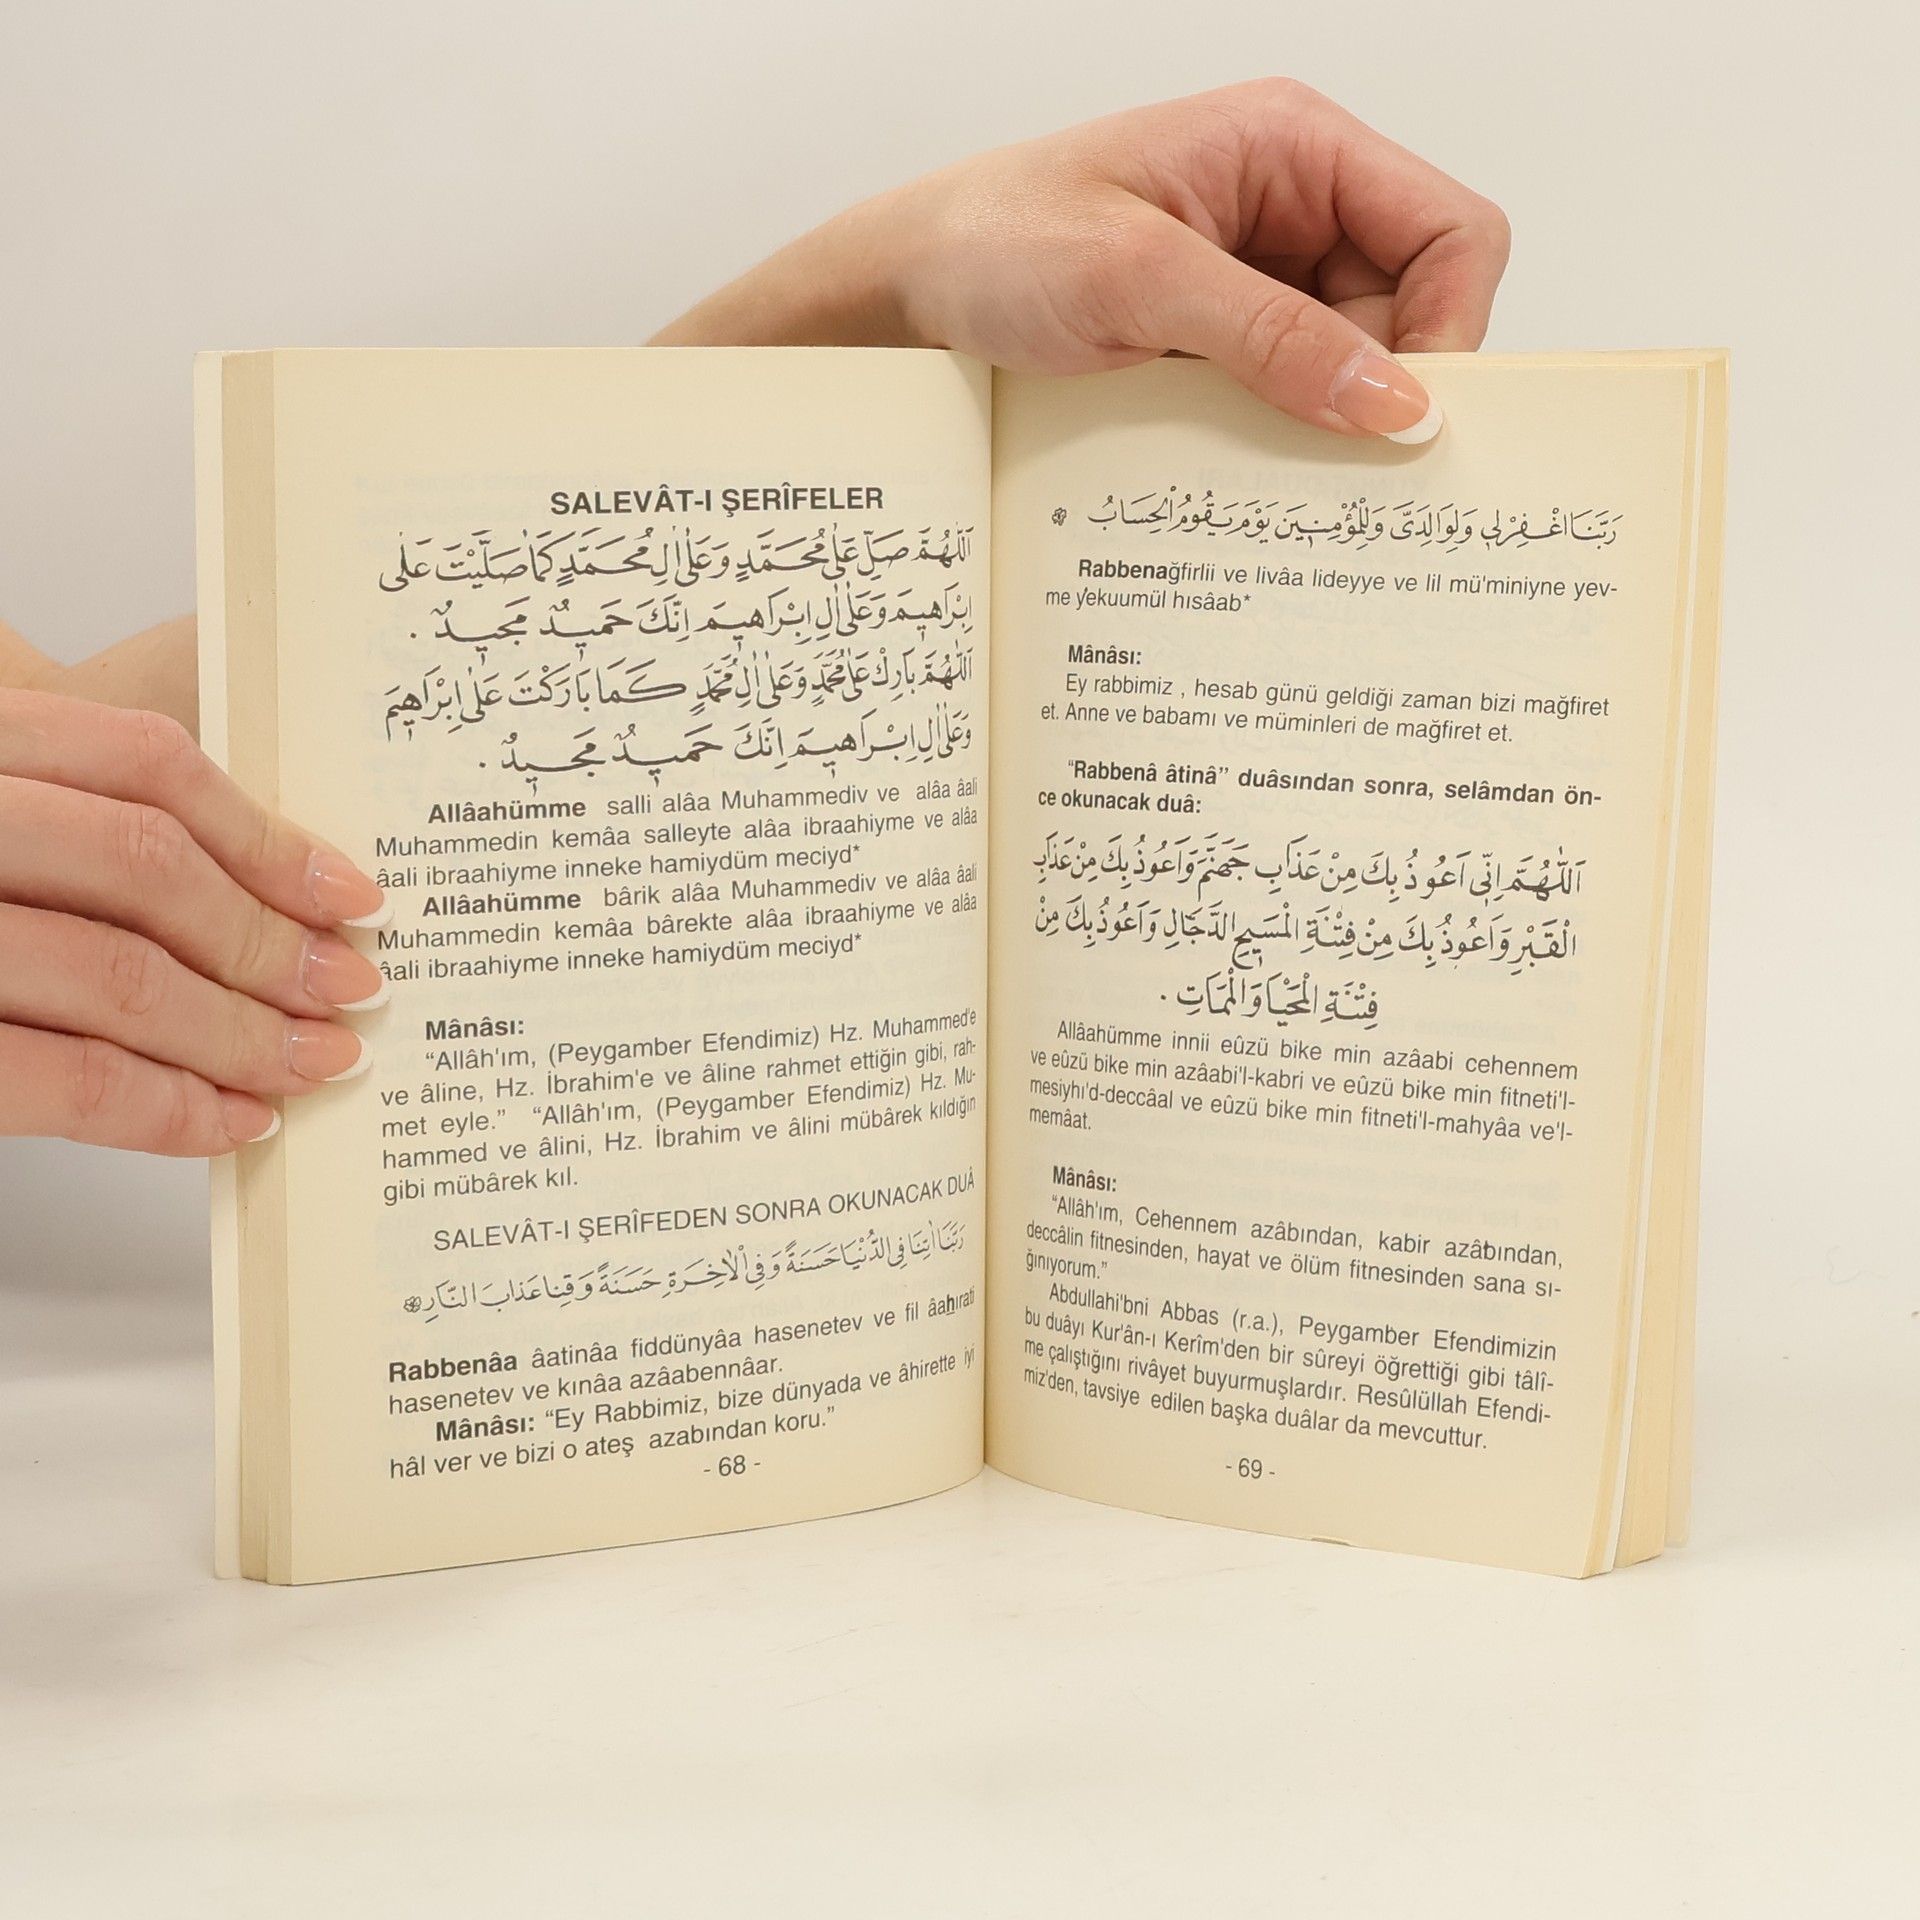 SALEVÂT-I ŞERÎFELER
اَللّٰهُمَّ صَلِّ عَلٰى مُحَمَّدٍ وَعَلٰى اٰلِ مُحَمَّدٍ كَمَا صَلَّيْتَ عَلٰى
اِبْرَاهِيمَ وَعَلٰى اٰلِ اِبْرَاهِيمَ اِنَّكَ حَمِيدٌ مَجِيدٌ .
اَللّٰهُمَّ بَارِكْ عَلٰى مُحَمَّدٍ وَعَلٰى اٰلِ مُحَمَّدٍ كَمَا بَارَكْتَ عَلٰى اِبْرَاهِيمَ
وَعَلٰى اٰلِ اِبْرَاهِيمَ اِنَّكَ حَمِيدٌ مَجِيدٌ .
Allâahümme salli alâa Muhammediv ve alâa âali
Muhammedin kemâa salleyte alâa ibraahiyme ve alâa
âali ibraahiyme inneke hamiydüm meciyd*
Allâahümme bârik alâa Muhammediv ve alâa âali
Muhammedin kemâa bârekte alâa ibraahiyme ve alâa
âali ibraahiyme inneke hamiydüm meciyd*
Mânâsı:
“Allâh'ım, (Peygamber Efendimiz) Hz. Muhammed'e
ve âline, Hz. İbrahim'e ve âline rahmet ettiğin gibi, rah-
met eyle.” “Allâh'ım, (Peygamber Efendimiz) Hz. Mu-
hammed ve âlini, Hz. İbrahim ve âlini mübârek kıldığın
gibi mübârek kıl.
SALEVÂT-I ŞERÎFEDEN SONRA OKUNACAK DUÂ
رَبَّنَا اٰتِنَا فِى الدُّنْيَا حَسَنَةً وَفِى الْاٰخِرَةِ حَسَنَةً وَقِنَا عَذَابَ النَّارِ
Rabbenâa âatinâa fiddünyâa hasenetev ve fil âahırati
hasenetev ve kınâa azâabennâar.
Mânâsı: “Ey Rabbimiz, bize dünyada ve âhirette iyi
hâl ver ve bizi o ateş azabından koru.”
- 68 -
رَبَّنَا اغْفِرْلِى وَلِوَالِدَىَّ وَلِلْمُؤْمِنِينَ يَوْمَ يَقُومُ الْحِسَابُ
Rabbenağfirlii ve livâa lideyye ve lil mü'miniyne yev-
me yekuumül hısâab*
Mânâsı:
Ey rabbimiz , hesab günü geldiği zaman bizi mağfiret
et. Anne ve babamı ve müminleri de mağfiret et.
“Rabbenâ âtinâ” duâsından sonra, selâmdan ön-
ce okunacak duâ:
اَللّٰهُمَّ اِنِّى اَعُوذُ بِكَ مِنْ عَذَابِ جَهَنَّمَ وَاَعُوذُ بِكَ مِنْ عَذَابِ
الْقَبْرِ وَاَعُوذُ بِكَ مِنْ فِتْنَةِ الْمَسِيحِ الدَّجَّالِ وَاَعُوذُ بِكَ مِنْ
فِتْنَةِ الْمَحْيَا وَالْمَمَاتِ .
Allâahümme innii eûzü bike min azâabi cehennem
ve eûzü bike min azâabi'l-kabri ve eûzü bike min fitneti'l-
mesiyhı'd-deccâal ve eûzü bike min fitneti'l-mahyâa ve'l-
memâat.
Mânâsı:
“Allâh'ım, Cehennem azâbından, kabir azâbından,
deccâlin fitnesinden, hayat ve ölüm fitnesinden sana sı-
ğınıyorum.”
Abdullahi'bni Abbas (r.a.), Peygamber Efendimizin
bu duâyı Kur'ân-ı Kerîm'den bir sûreyi öğrettiği gibi tâlî-
me çalıştığını rivâyet buyurmuşlardır. Resûlüllah Efendi-
miz'den, tavsiye edilen başka duâlar da mevcuttur.
- 69 -